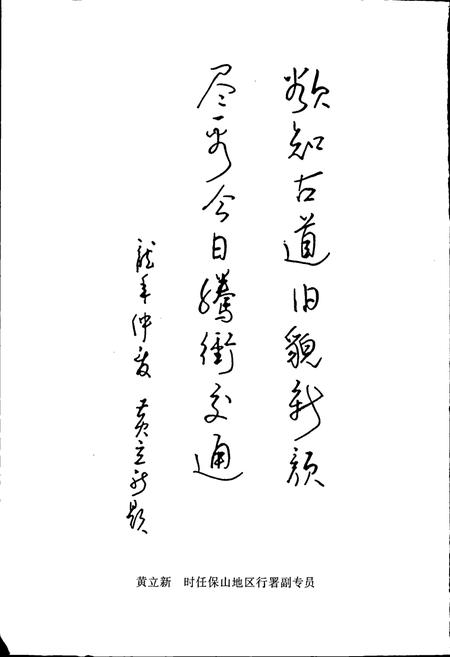 欲知古道旧貌新颜
尽看今日腾衝交通
龙年仲夏 黄立新题
黄立新 时任保山地区行署副专员